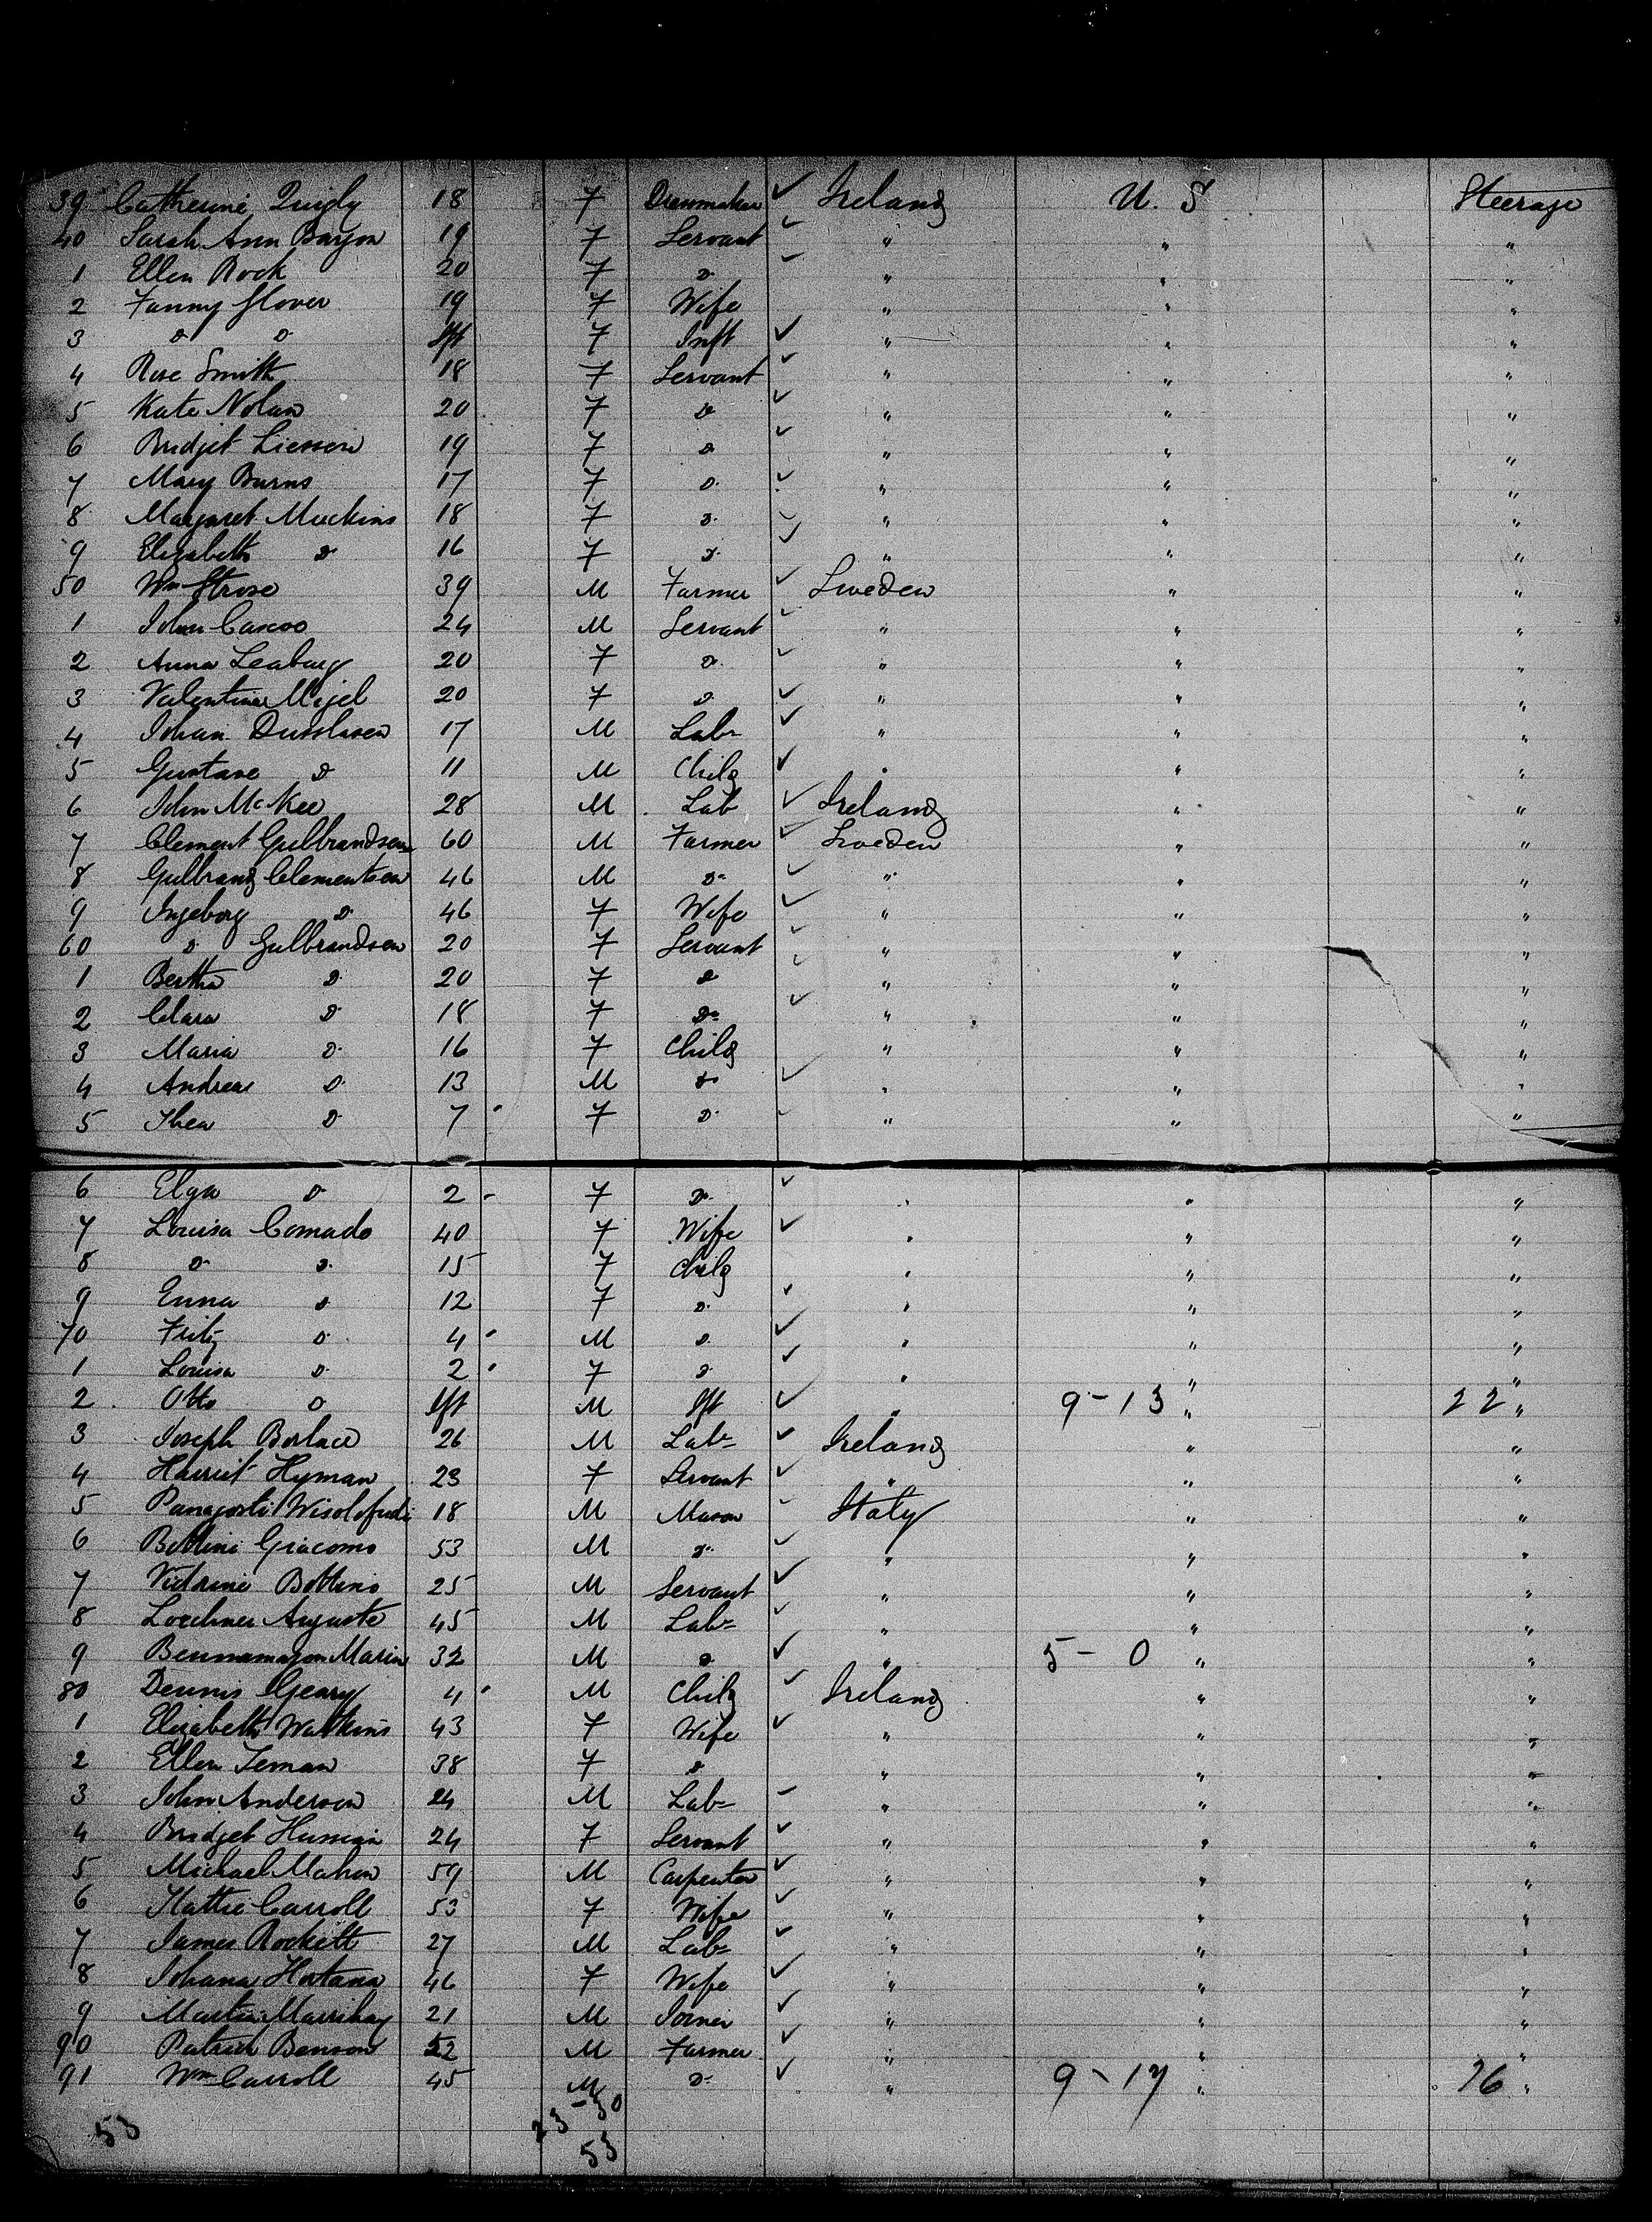 39 Catherine Quigly 18 F Dressmaker ✓ Ireland U. S Steerage
40 Sarah Ann 19 F Servant ✓ " " "
1 Ellen Rock 20 F Do ✓ " " "
2 Fanny Glover 19 F Wife " " "
3 Do Do Ift F Inft ✓ " " "
4 Rose Smith 18 F Servant ✓ " " "
5 Kate Nolan 20 F Do ✓ " " "
6 Bridget 19 F Do ✓ " " "
7 Mary Burns 17 F Do ✓ " " "
8 Margaret Muckins 18 F Do ✓ " " "
9 Elizabeth Do 16 F Do ✓ " " "
50 Wm Strose 39 M Farmer ✓ Sweden " "
1 John 24 M Servant ✓ " " "
2 Anna Leaburg 20 F Do ✓ " " "
3 Valentine Migel 20 F Do ✓ " " "
4 Johan 17 M Labr ✓ " " "
5 Gustave Do 11 M Child ✓ " " "
6 John McKee 28 M Lab ✓ Ireland " "
7 Clement Gulbrandsen 60 M Farmer ✓ Sweden " "
8 Gulbrand Clementsen 46 M Do ✓ " " "
9 Ingeborg Do 46 F Wife ✓ " " "
60 Do Gulbrandsen 20 F Servant ✓ " " "
1 Bertha Do 20 F Do ✓ " " "
2 Clara Do 18 F Do ✓ " " "
3 Maria Do 16 F Child " " "
4 Andreas Do 13 M Do ✓ " " "
5 Thea Do 7 F Do ✓ " " "
6 Elga Do 2 F Do ✓ " " "
7 Louisa Comado 40 F Wife ✓ " " "
8 Do Do 15 F Child " " "
9 Enna Do 12 F Do ✓ " " "
70 Fritz Do 4 M Do ✓ " " "
1 Louisa Do 2 F Do ✓ " " "
2 Otto Do Ift M Ift ✓ " 9-13 " 22 "
3 Joseph Borlace 26 M Labr ✓ Ireland " "
4 Harriet Hyman 23 F Servant ✓ " " "
5 18 M Mason ✓ Italy " "
6 Bottini Giacomo 53 M Do ✓ " " "
7 Bottini 25 M Servant ✓ " " "
8 Auguste 45 M Labr ✓ " " "
9 Maria 32 M Do ✓ " 5-0 " "
80 Dennis Geary 4 M Child ✓ Ireland " "
1 Elizabeth Watkins 43 F Wife ✓ " " "
2 Ellen Teman 38 F Do " " "
3 John Anderson 24 M Labr ✓ " " "
4 Bridget 24 F Servant ✓ " " "
5 Michael Mahon 59 M Carpenter ✓ " " "
6 Hattie Carroll 53 F Wife ✓ " " "
7 James Rockett 27 M Labr ✓ " " "
8 Johana Hartana 46 F Wife ✓ " " "
9 Martin 21 M Joiner ✓ " " "
90 Patrick Benson 22 M Farmer ✓ " " "
91 Wm Carroll 45 M Do ✓ " 9-17 " 26 "
53 23-30
53